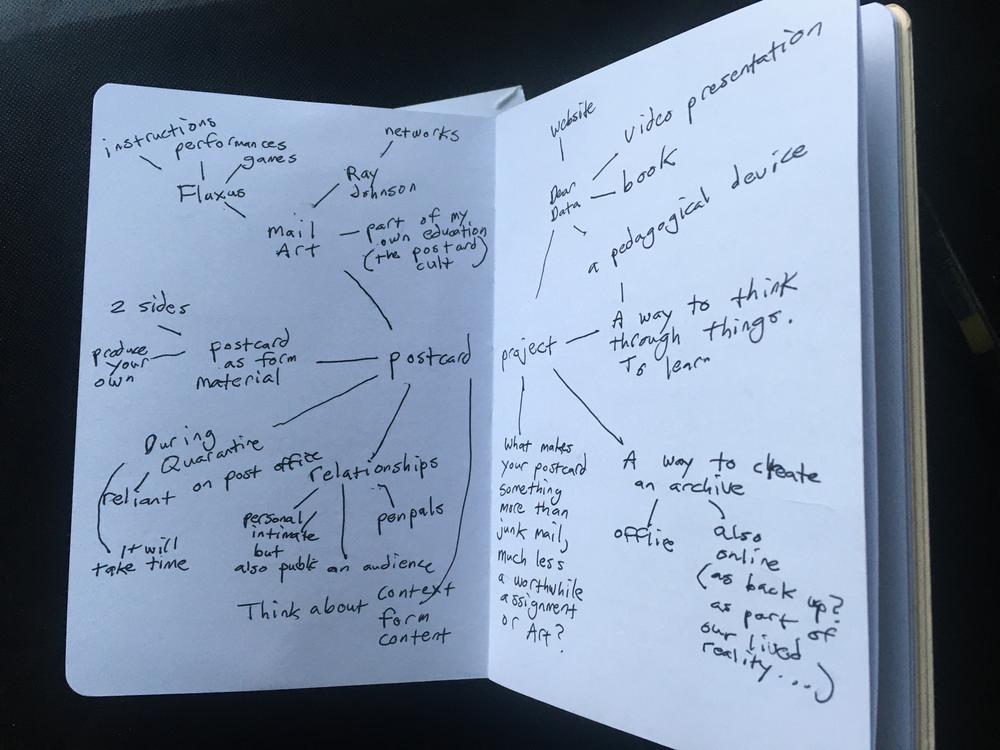 instructions
performances
games
Fluxus
networks
Ray
Johnson
Mail
Art
part of my
own education
(the postcard
cult)
2 sides
produce
your
own
postcard
as form
material
postcard
During
Quarantine
reliant on post office
It will
take time
relationships
personal
intimate
but
also public
an audience
penpals
Think about context
form
content
website
video presentation
Dear
Data
book
a pedagogical device
project
A way to think
through things.
To learn
What makes
your postcard
something
more than
junk mail,
much less
a worthwhile
assignment
or Art?
A way to create
an archive
offlie
also
online
(as back up?
as part of
our lived
reality....)